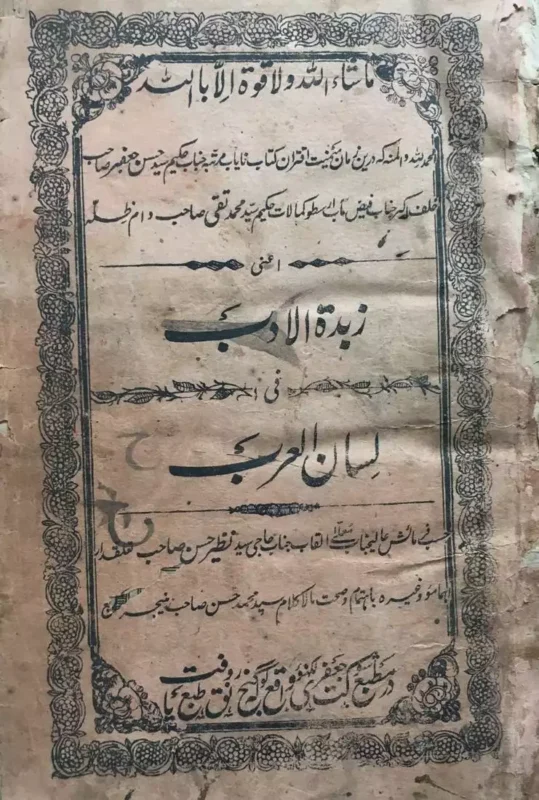 ماشاء اللہ ولا قوۃ الّا باللہ
الحمد للہ والمنہ کہ درین زمان میمنت اقتران کتاب نایاب مرتبہ جناب حکیم سید حسن جعفر صاحب
خلف اکبر جناب فیض مآب ارسطو کمالات حکیم سید محمد تقی صاحب دام ظلہ
اعنی
زبدۃ الادب
فی
لسان العرب
حسب فرمائش عالیجناب معلے القاب جناب حاجی سید نظیر حسن صاحب تعلقدار
وغیرہ باہتمام وصحت مالاکلام سید محمد حسن صاحب منیجر
در مطبع جعفری لکھنؤ واقع گنج رونق طبع یافت